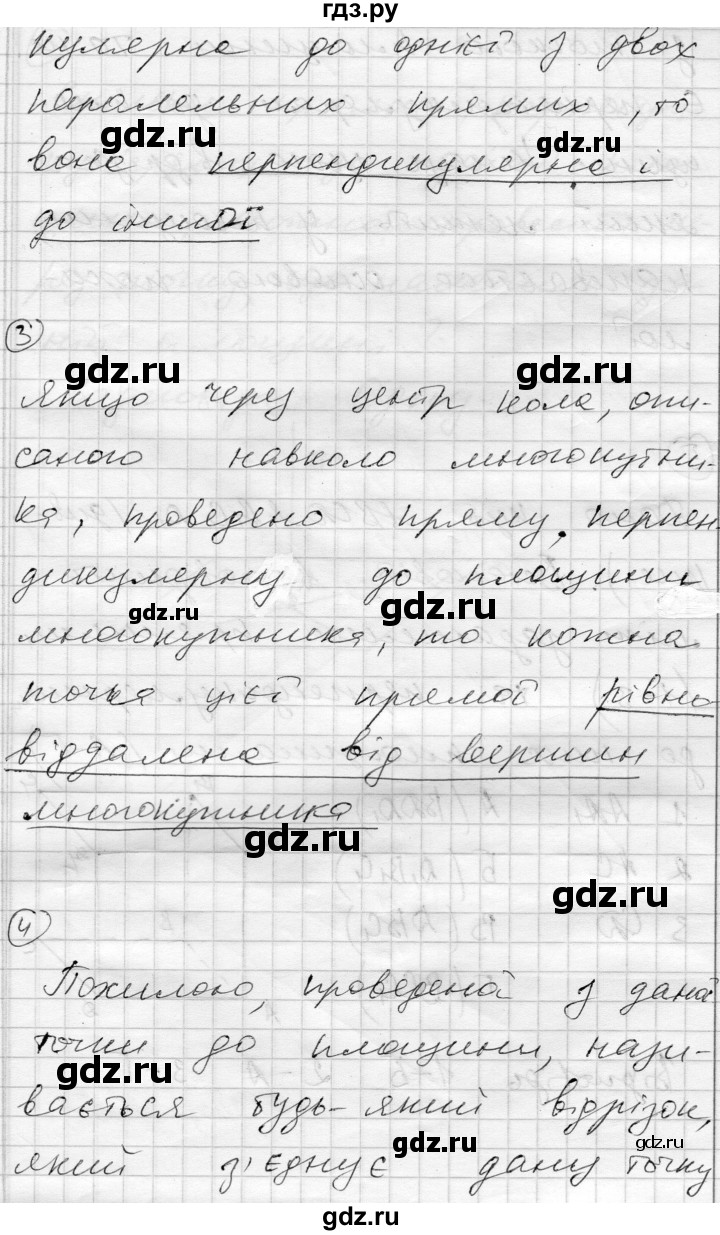 гдз.ру
кулярна до однієї з двох
паралельних прямих, то
gdz.ru gdz.ru
вона перпендикулярна і
до іншої
3
gdz.ru gdz.ru
Якщо через центр кола, опи-
саного навколо многокутни-
ка, проведено пряму, перпен-
gdz.ru gdz.ru
дикулярну до площини
gdz.ru gdz.ru
многокутника, то кожна
точка цієї прямої рівно
віддалена від вершин
многокутника
gdz.ru
gdz.ru
4
Похилою, проведеної з даної
точки до площини, нази-
gdz.ru
вається будь-який відрізок,
gdz.ru gdz.ru
який з'єднує дану точку
gdz.ru